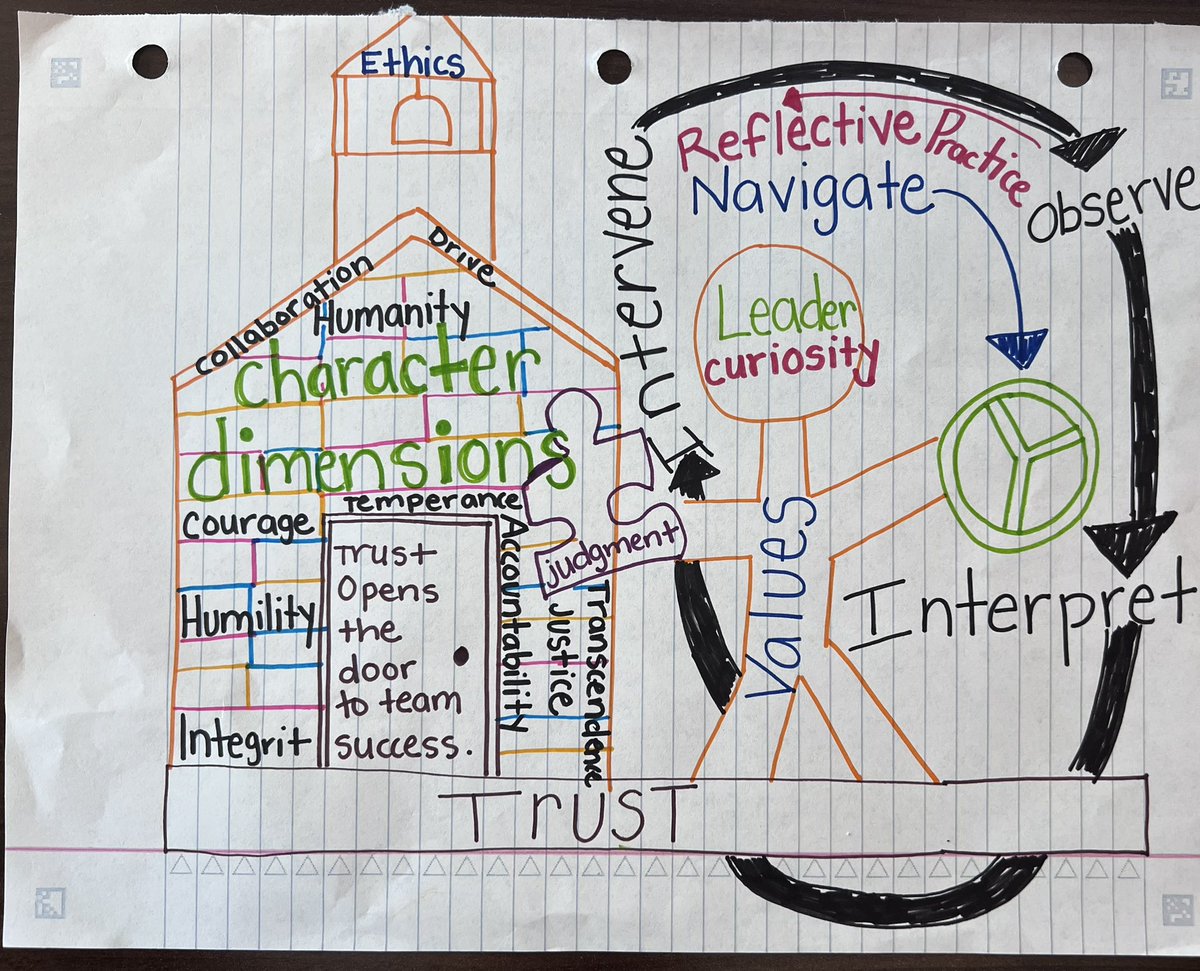 Ethics
collaboration
Drive
Humanity
character
dimensions
Temperance
courage
Humility
Integrit
Trust
Opens
the
door
to team
success.
Accountability
justice
Transcendence
judgment
Intervene
Reflective Practice
Navigate
Observe
Leader
curiosity
Values
Interpret
TrUST